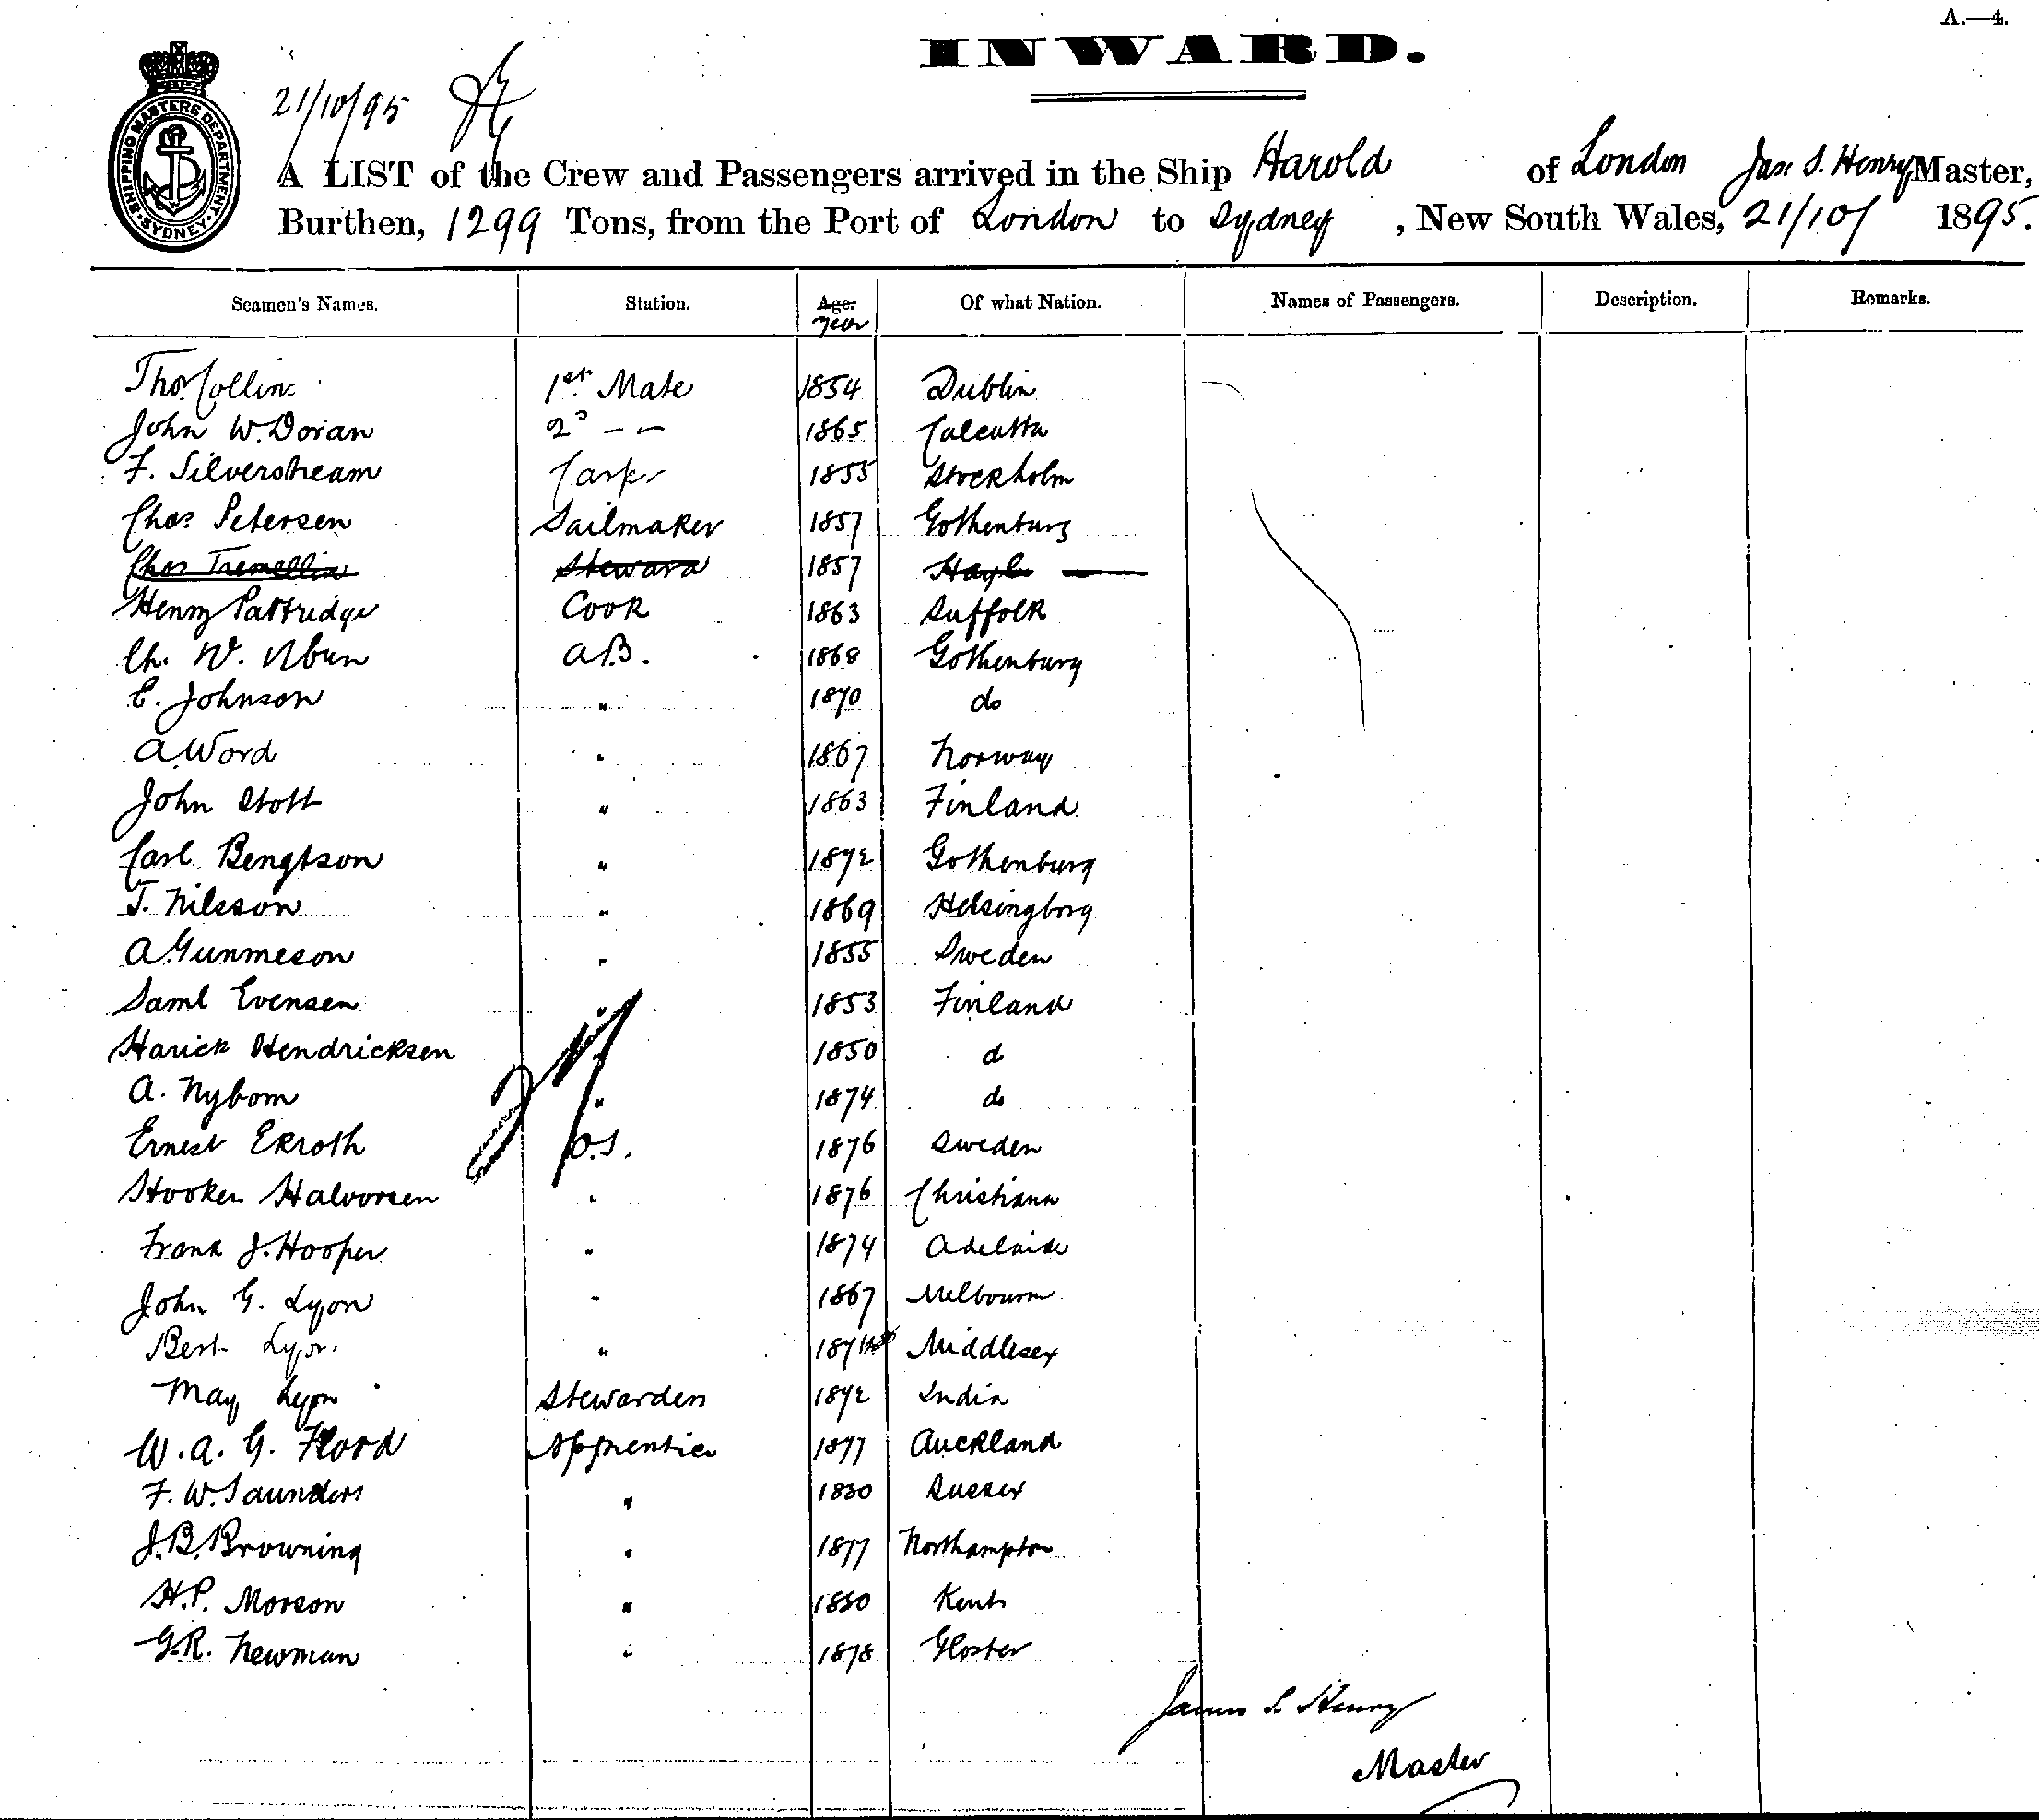 A.—4.
INWARD.
21/10/95
SHIPPING MASTERS DEPARTMENT SYDNEY
A LIST of the Crew and Passengers arrived in the Ship Harold of London Jas. S. Henry Master,
Burthen, 1299 Tons, from the Port of London to Sydney, New South Wales, 21/10/ 1895.
Seamen's Names. Station. Age. Of what Nation. Names of Passengers. Description. Remarks.
year
Thos Collins 1st Mate 1854 Dublin
John W. Doran 2d – – 1865 Calcutta
F. Silverstream Carpr 1855 Stockholm
Chas Petersen Sailmaker 1857 Gothenburg
Chas Tremellin Steward 1857 Hayle
Henry Partridge Cook 1863 Suffolk
Ch. W. A.B. 1868 Gothenburg
C. Johnson " 1870 do
A. Word " 1867 Norway
John Stott " 1863 Finland
Carl Bengtson " 1872 Gothenburg
T. Nilsson " 1869 Helsingborg
A. Gunmeson " 1855 Sweden
Saml Evensen " 1853 Finland
Harick Hendricksen " 1850 do
A. Nybom " 1874 do
Ernest Ekroth O.S. 1876 Sweden
Hooken Halvorsen " 1876 Christiana
Frank J. Hooper " 1874 Adelaide
John G. Lyon " 1867 Melbourne
Bert Lyon " Middlesex
May Lyon Stewardess 1872 India
W. A. G. Flood Apprentice 1877 Auckland
F. W. Saunders " 1880 Sussex
J. B. Browning " 1877 Northampton
H. P. Morson " 1880 Kent
G. R. Newman " 1878 Gloster
27
James S. Henry
Master